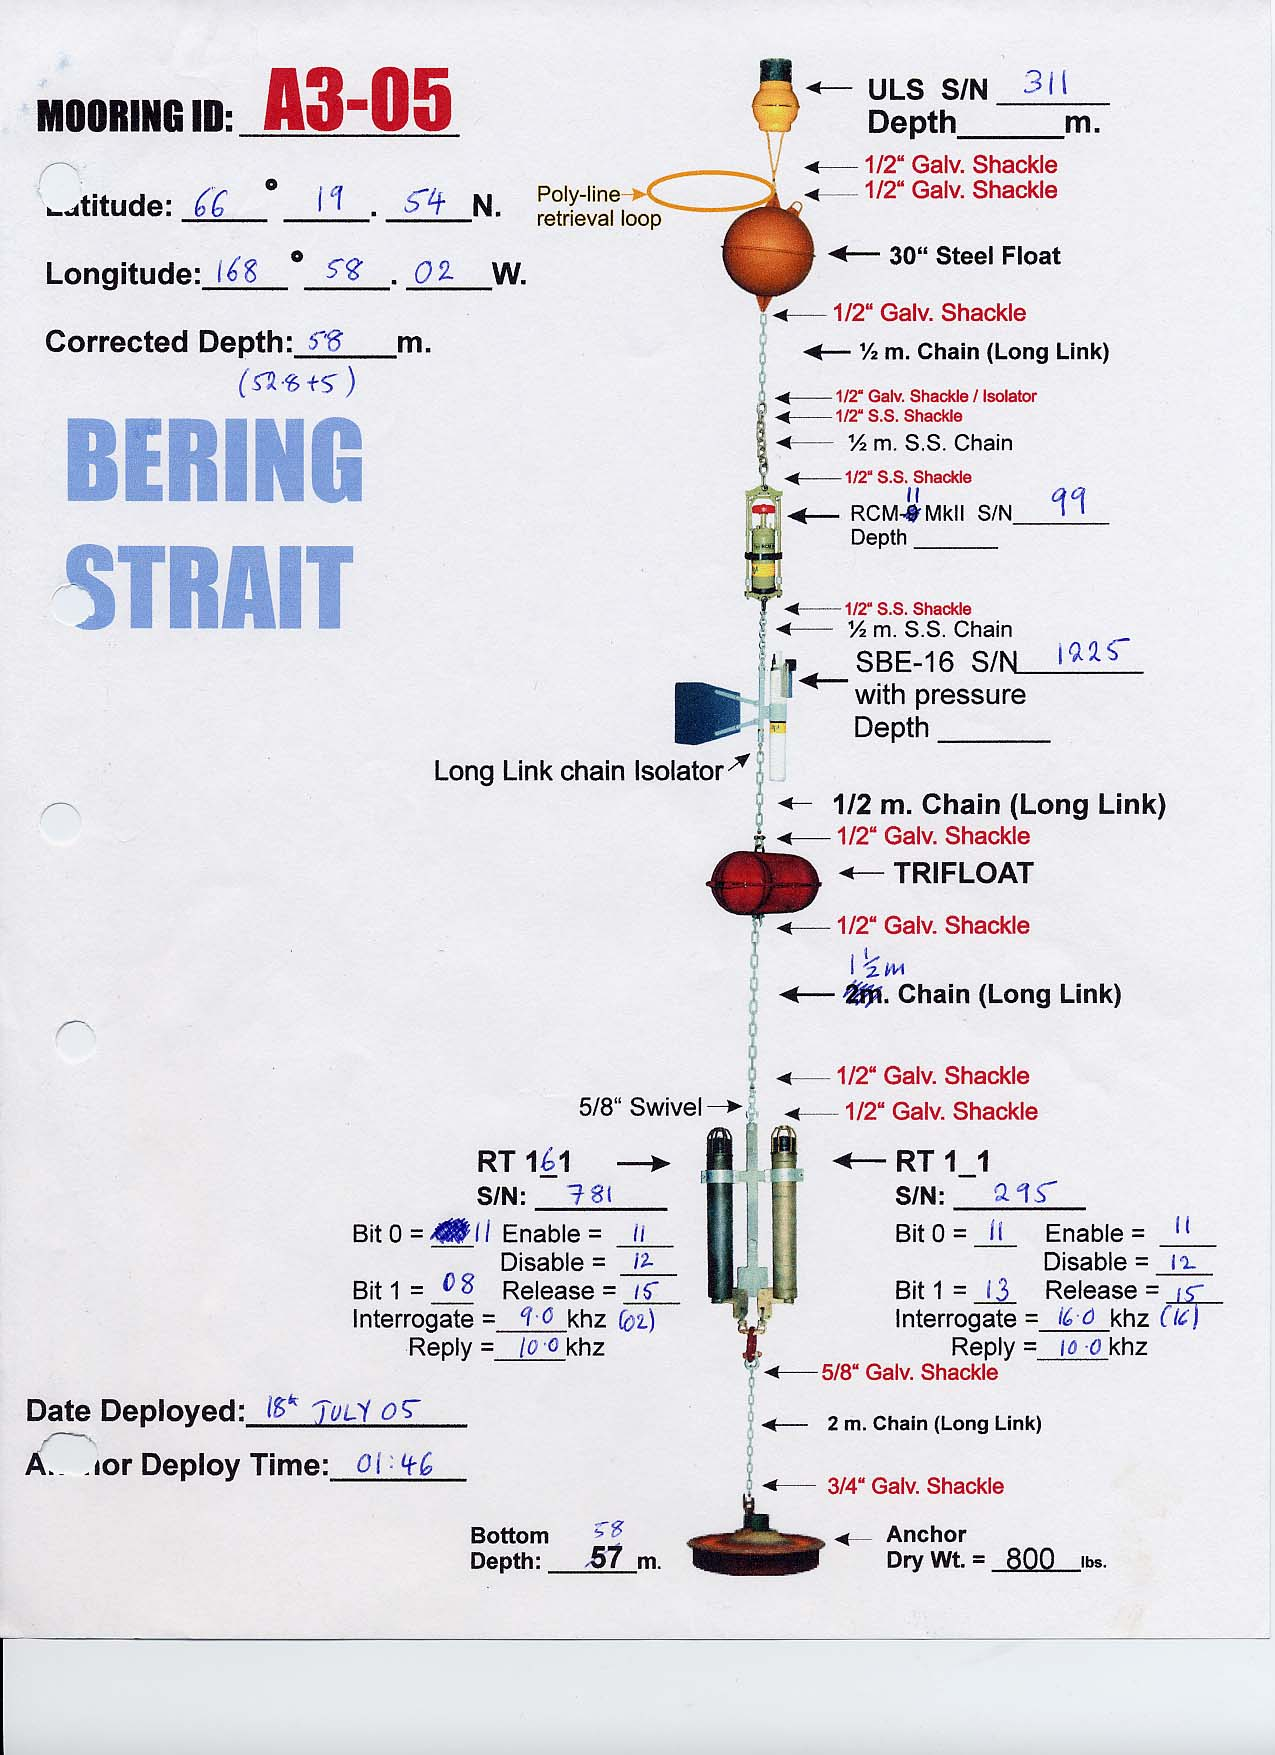 MOORING ID: A3-05
Latitude: 66 ° 19 . 54 N.
Longitude: 168 ° 58 . 02 W.
Corrected Depth: 58 m.
(52.8+5)
BERING
STRAIT
ULS S/N 311
Depth______m.
1/2" Galv. Shackle
1/2" Galv. Shackle
Poly-line
retrieval loop
30" Steel Float
1/2" Galv. Shackle
½ m. Chain (Long Link)
1/2" Galv. Shackle / Isolator
1/2" S.S. Shackle
½ m. S.S. Chain
1/2" S.S. Shackle
11
RCM-8 MkII S/N 99
Depth ______
1/2" S.S. Shackle
½ m. S.S. Chain
SBE-16 S/N 1225
with pressure
Depth ______
Long Link chain Isolator
1/2 m. Chain (Long Link)
1/2" Galv. Shackle
TRIFLOAT
1/2" Galv. Shackle
1 1/2 m
2m. Chain (Long Link)
1/2" Galv. Shackle
5/8" Swivel
1/2" Galv. Shackle
RT 161
S/N: 781
Bit 0 = 11 Enable = 11
Disable = 12
Bit 1 = 08 Release = 15
Interrogate = 9.0 khz (02)
Reply = 10.0 khz
RT 1_1
S/N: 295
Bit 0 = 11 Enable = 11
Disable = 12
Bit 1 = 13 Release = 15
Interrogate = 16.0 khz (16)
Reply = 10.0 khz
5/8" Galv. Shackle
2 m. Chain (Long Link)
3/4" Galv. Shackle
Date Deployed: 18th JULY 05
Anchor Deploy Time: 01:46
Bottom 58
Depth: 57 m.
Anchor
Dry Wt. = 800 lbs.